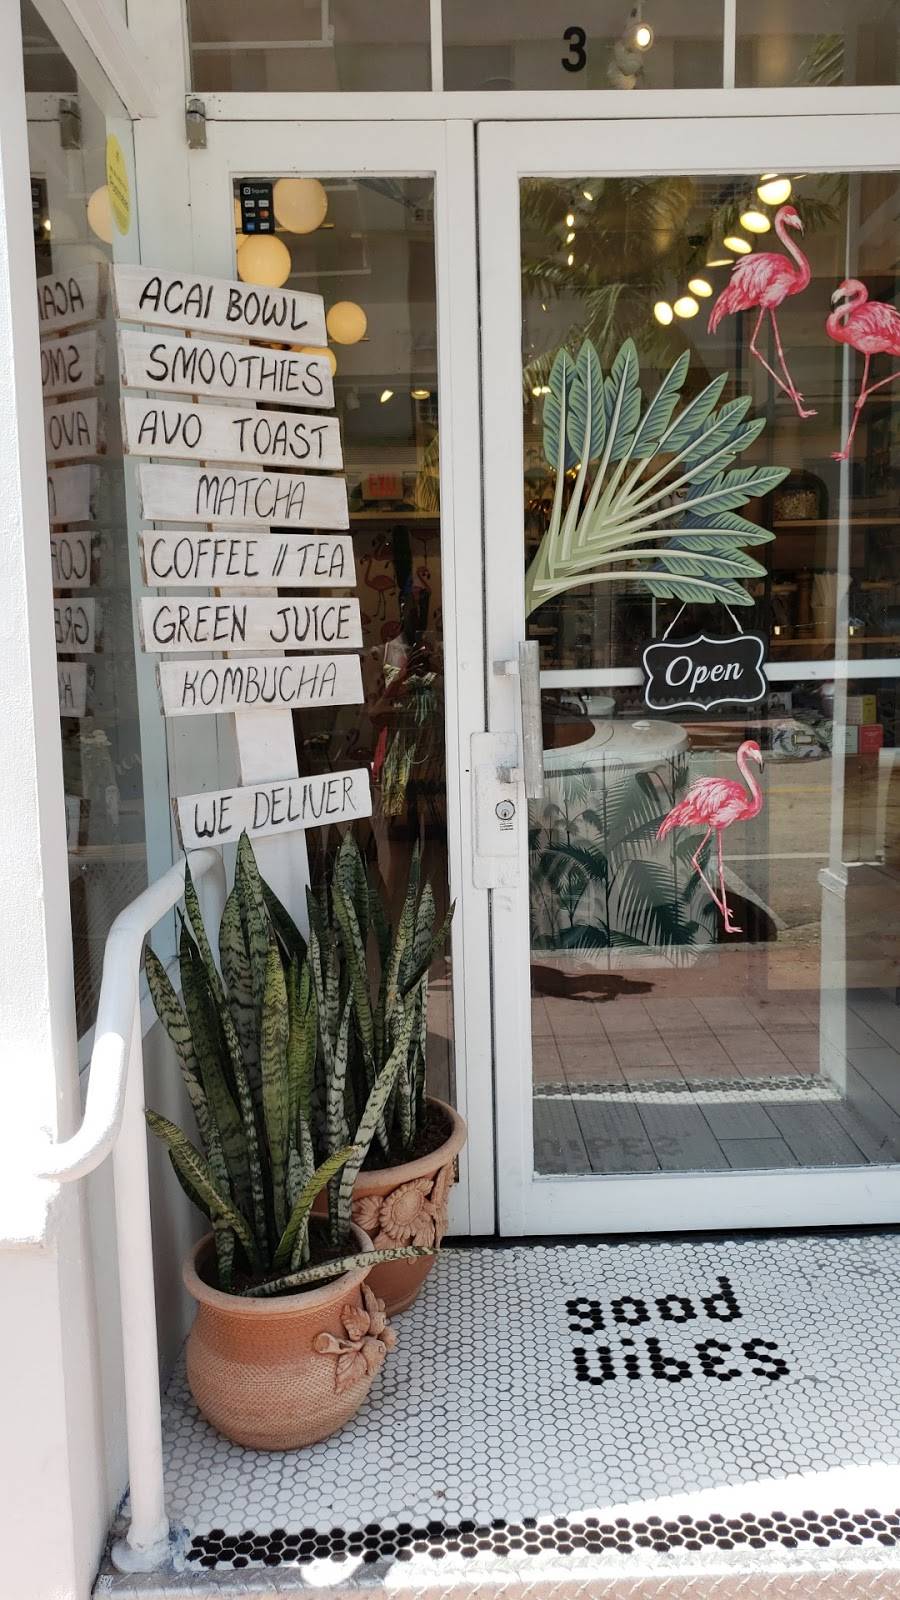 3
Square
VISA
ACAI BOWL
SMOOTHIES
AVO TOAST
MATCHA
COFFEE // TEA
GREEN JUICE
KOMBUCHA
WE DELIVER
EXIT
Open
good
vibes